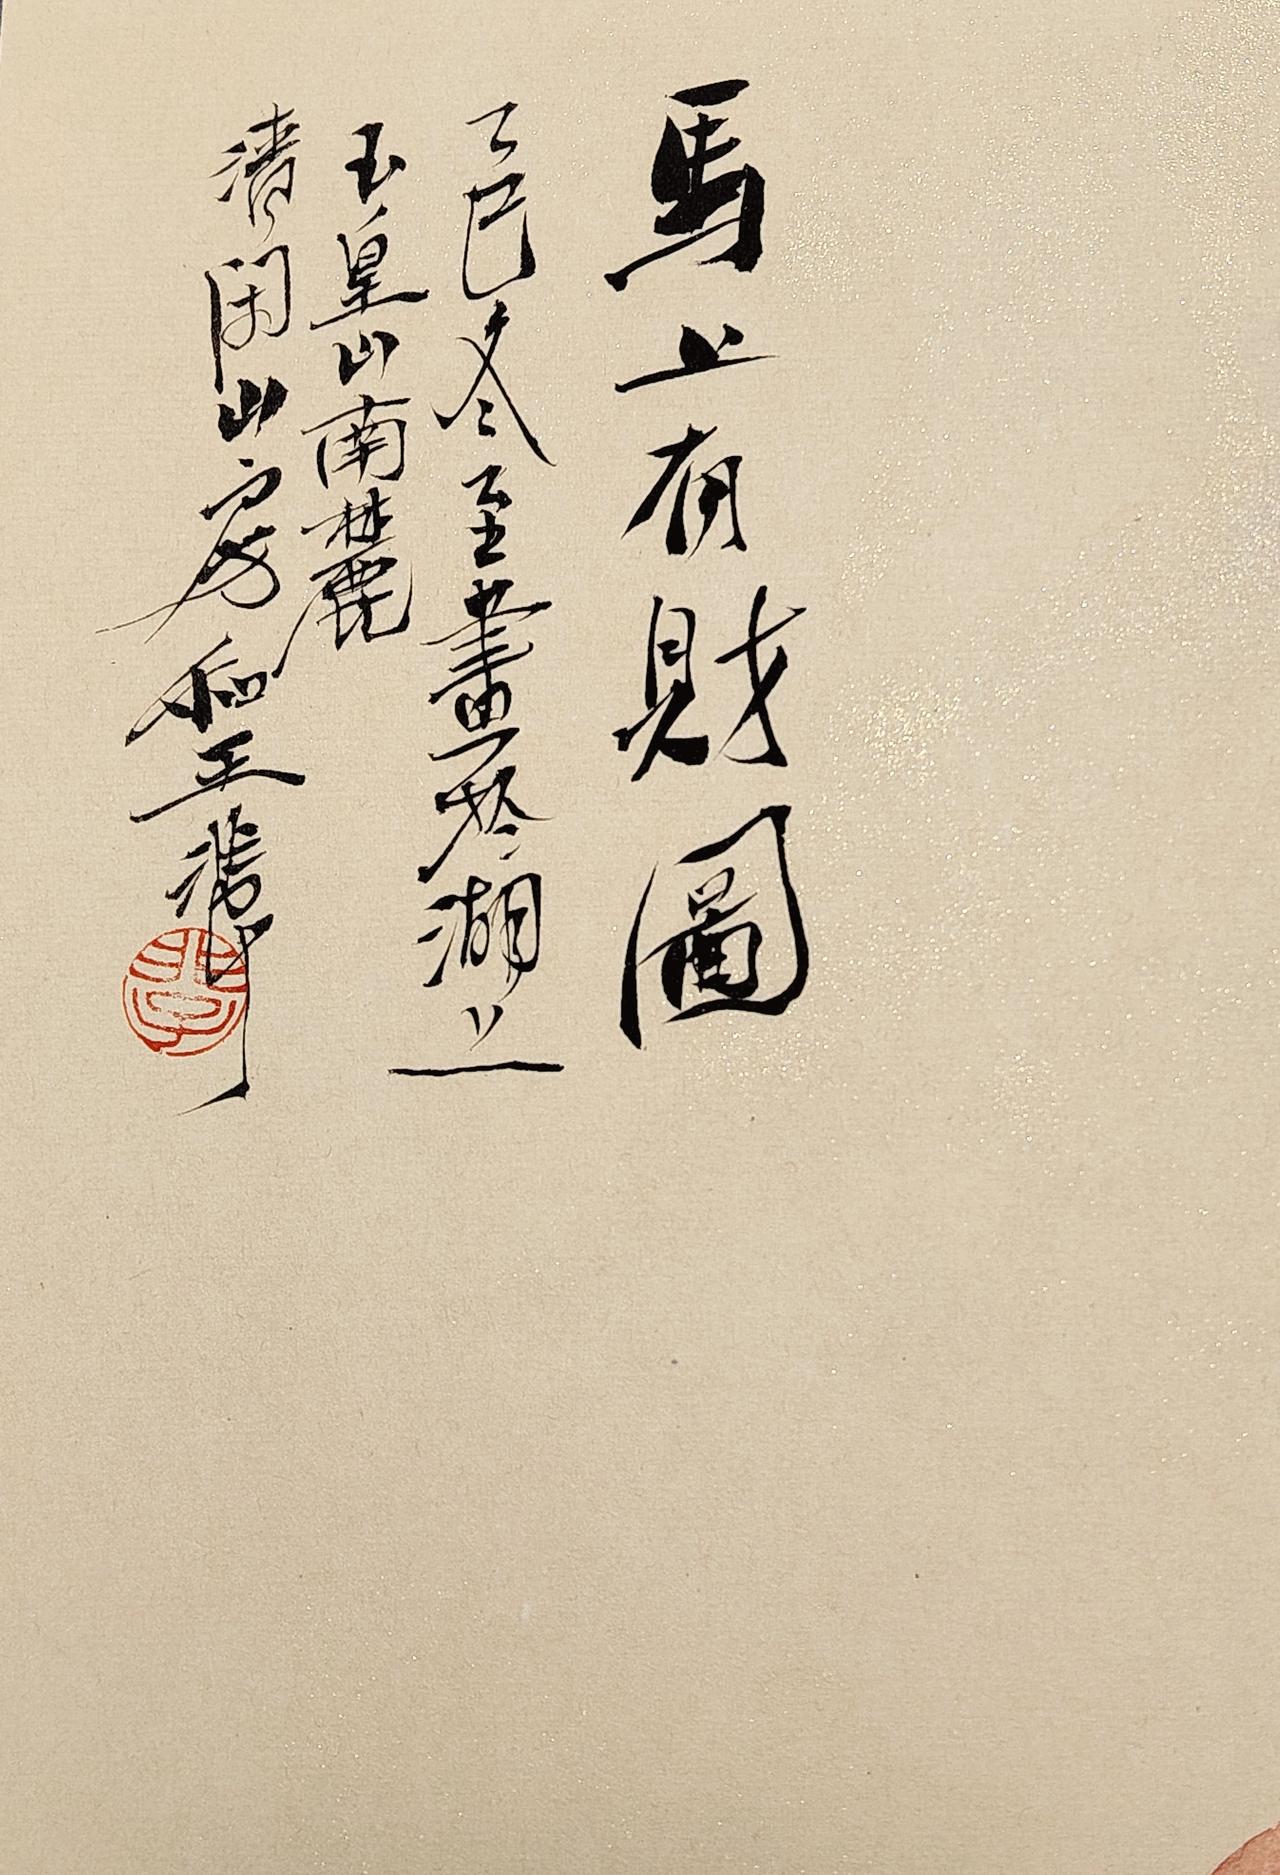 馬上有財圖
乙巳冬至畫於湖上
玉皇山南麓
清閑山房